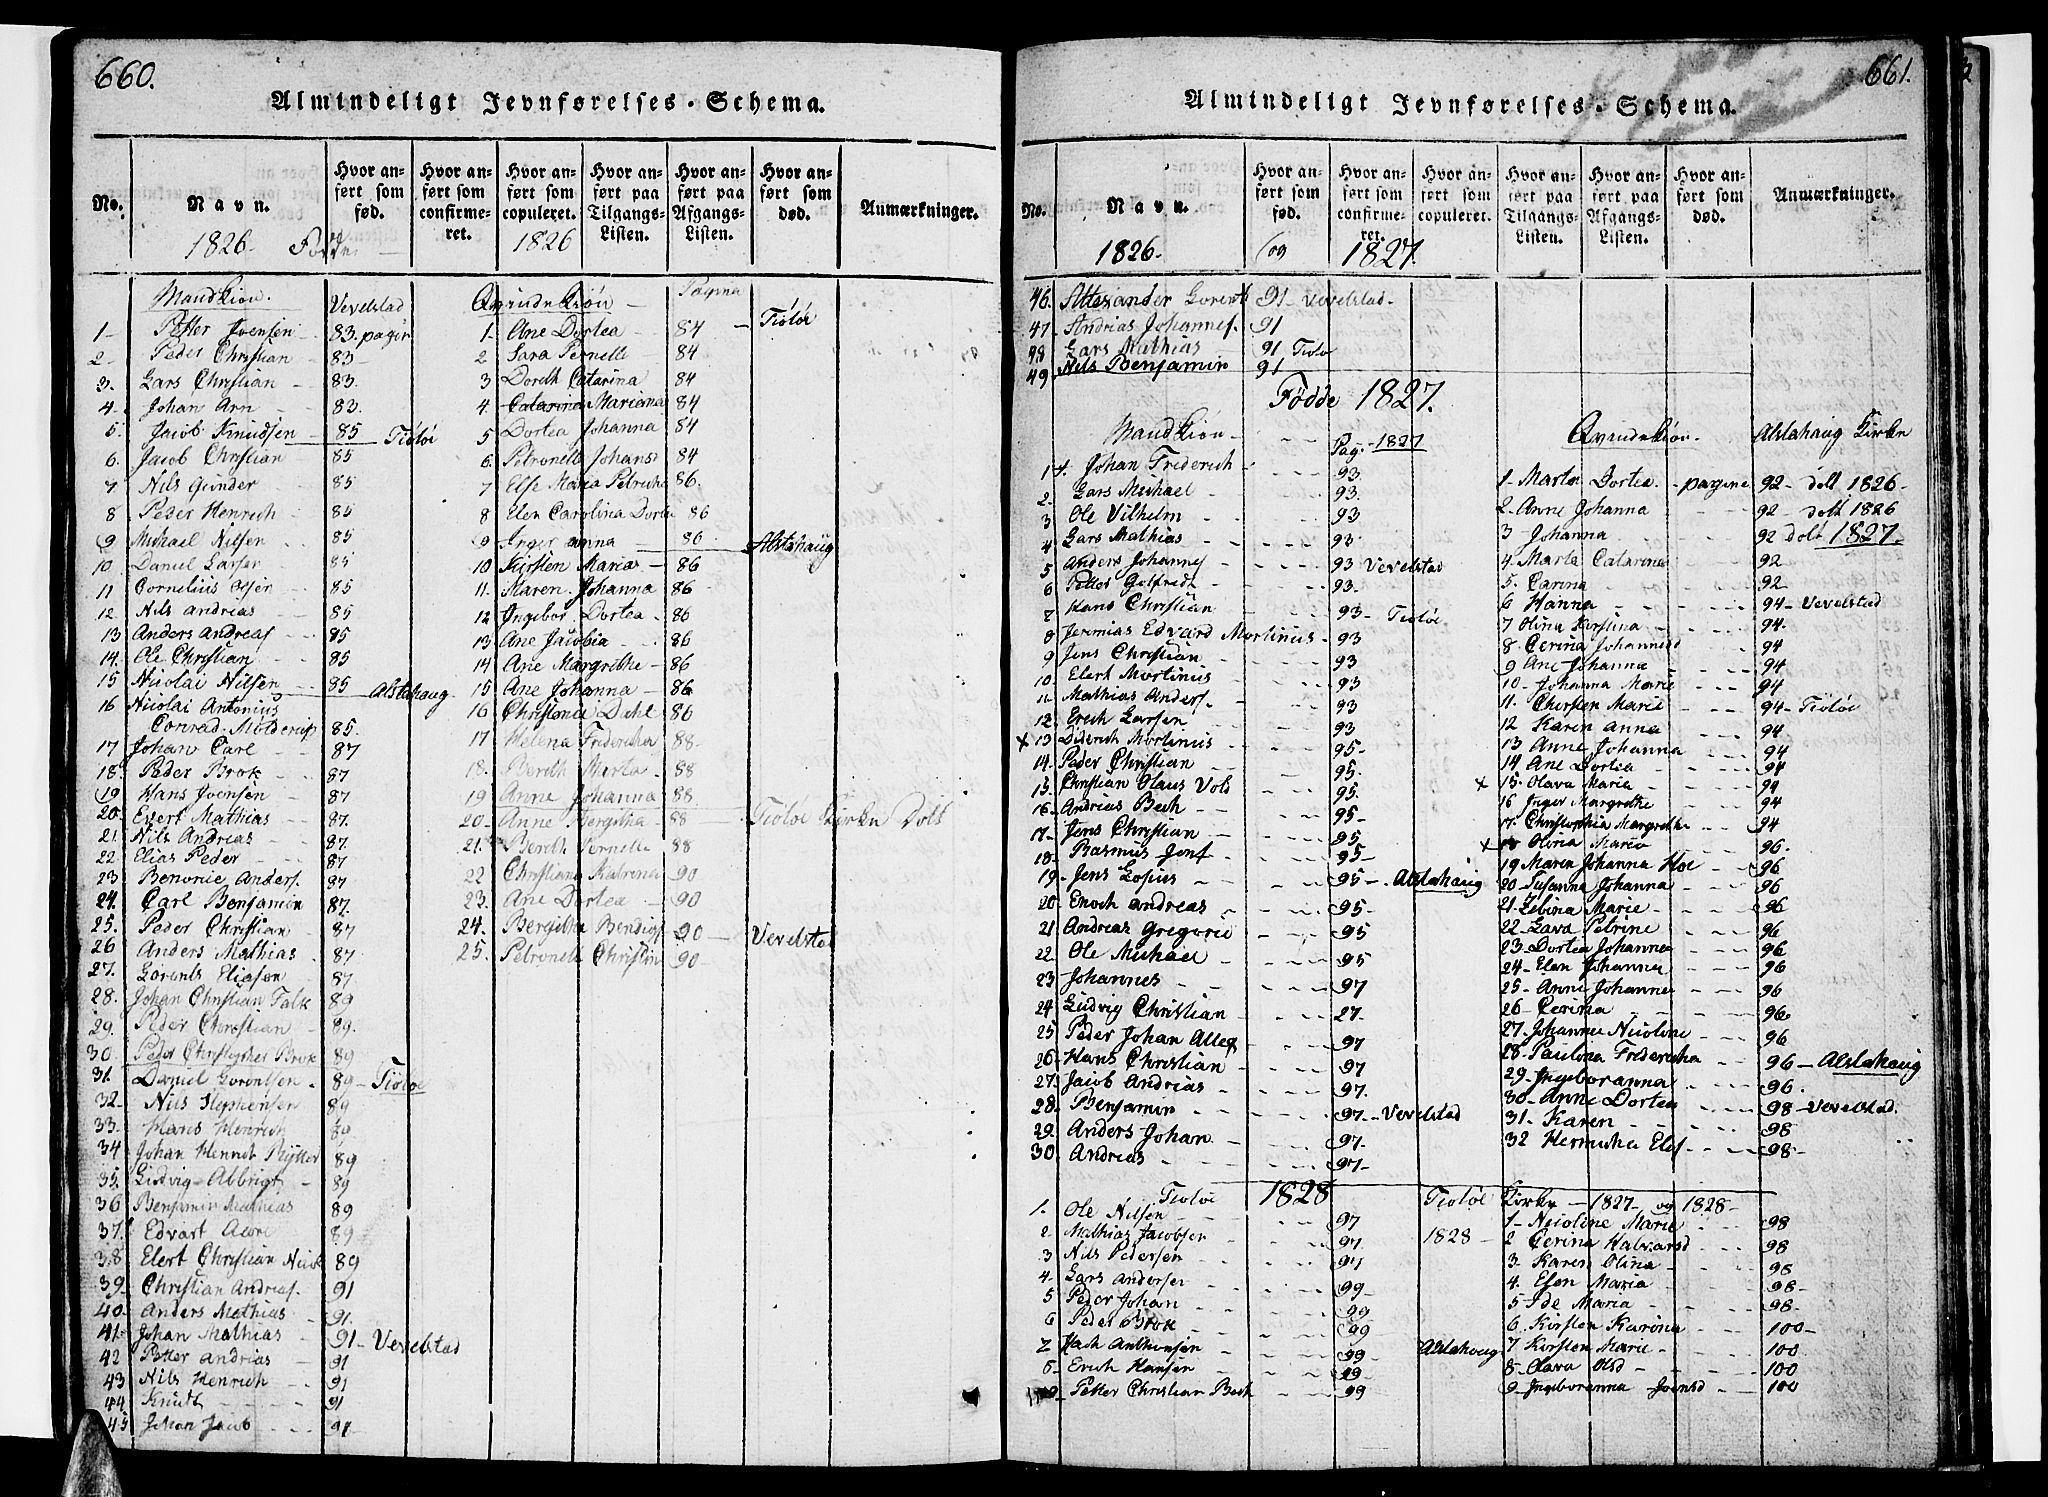 660.
Almindeligt Jevnførelses-Schema.
No.
Navn.
Hvor anført som fød.
Hvor anført som confirmeret.
Hvor anført som copuleret.
Hvor anført paa Tilgangs-Listen.
Hvor anført paa Afgangs-Listen.
Hvor anført som død.
Anmærkninger.
1826 Fødde
1826
Mandkiøn. Vevelstad
1 Petter Joensen 83. pagin
2 Peder Christian 83
3. Lars Christian 83.
4. Johan Arn 83.
5. Jacob Knudsen 85 Tiøtøe
6. Jacob Christian 85
7 Nils Gunder 85
8 Peder Henrich 85
9 Michael Nilsen 85
10 Daniel Larsen 85
11 Cornelius Olsen 85
12 Nils Andrias 85
13 Anders Andreas 85
14. Ole Christian 85
15 Nicolai Nilsen 85 Alstahaug
16 Nicolai Antonius
Conrad 85.
17 Johan Carl 87
18. Peder Brok 87
19 Hans Joensen 87
20. Evert Mathias 87.
21. Nils Andreas 87.
22. Elias Peder 87
23 Benonie Anders. 87
24. Carl Benjamin 87.
25. Peder Christian 87
26 Anders Mathias 87
27. Lorents Eliasen 87
28. Johan Christian Falk 89
29. Peder Christian 89.
30. Peder Christopher Brok 89
31. Daniel Lorentsen 89 Tiøtøe
32. Nils Stephensen 89
33. Hans Henrich 89
34 Johan Henrik 89
35. Ludvig Albrigt 89
36 Benjamin Mathias 89
37. Edvart 89
38 Elert Christian 89
39. Christian Andreas. 91
40. Anders Mathias 91.
41 Johan Mathias 91 Vevelstad
42 Petter Andrias 91
43 Nils Henrich 91
44 Knudt 91
45 Johan Jacob 91
Qvindekiøn Pagina
1. Ane Dortea 84 Tiøtøe
2. Sara Pernelle 84
3 Doreth Catarina 84
4. Catarina Mariana 84
5 Dortea Johanna 84
6. Petronelle Johans 84
7 Else Maria Petricha 86.
8 Elen Carolina Dortea 86
9 Inger Anna 86 Alstahaug
10 Kirsten Maria 86
11. Maren Johanna 86
12 Ingebor Dortea 86
13 Ane Jacobia 86
14 Ane Margrethe 86
15 Ane Johanna 86
16 Christence Dahl 86
17 Helena Fredericha 88.
18. Bereth Marta 88
19 Anne Johanna 88
20 Anne Bergitha 88 Tiøtøe Kirke Døbt
21. Bereth Pernelle 88
22 Christiana Katrina 90
23. Ane Dortea 90
24. Bergitha Bendics 90 Vevelstad
25. Petronelle Christin 90
661.
Almindeligt Jevnførelses-Schema.
No.
Navn.
Hvor anført som fød.
Hvor anført som confirmeret.
Hvor anført som copuleret.
Hvor anført paa Tilgangs-Listen.
Hvor anført paa Afgangs-Listen.
Hvor anført som død.
Anmærkninger.
1826 og 1827
46. Allexander Lorents 91 Vevelstad
47 Andrias Johannes. 91
48 Lars Mathias 91 Tiøtø
49 Nils Benjamin 91
Fødde 1827.
Mandkiøn Pag. 1827
1 Johan Friderich 93
2. Lars Michael 93.
3 Ole Vilhelm 93
4 Lars Mathias 93
5 Anders Johannes 93 Vevelstad
6 Petter Golfredt 93.
7 Hans Christian 93 Tiøtøe
8 Jeremias Edvard Mortinus 93
9 Jens Christian 93
10 Elert Mortinus 93
11 Mathias Anders. 93
12. Erich Larsen 93
x 13 Diderich Mortinus 95
14. Peder Christian 95.
15. Christian Olaus Vold 95.
16 Andrias Bech 95
17 Jens Christian 95
18. Rasmus Jons 95
19 Jens Lopius 95 Alstahaug
20 Enoch Andreas 95
21 Andreas Gregorie 95
22. Ole Michael 95
23 Johannes 97
24 Ludvig Christian 27.
25 Peder Johan 97
26 Hans Christian 97
27. Jacob Andrias 97.
28. Benjamin 97 Vevelstad
29. Anders Johan 97.
30. Andrias 97
Qvindekiøn. Alstahaug Kirke
1 Marta Dortea pagina 92 døbt 1826
2 Anne Johanna 92 døbt 1826
3 Johanna 92 døbt 1827.
4. Marta Catarina 92
5. Carina 92
6 Hanna 94 Vevelstad
7 Olina Kirstina 94.
8 Cerina Johannesd 94
9 Ane Johanna 94
10 Johanna Marie 94
11. Chirsten Marie 94 Tiøtøe
12 Karen Anna 94
13 Anne Johanna 94
14 Ane Dortea 94
x 15 Olava Maria 94
16 Inger Margrethe 94
17. Christophia Margrethe 94
x 18 Olina Maria 96.
19 Maren Johanna Hoe 96
20 Susanna Johanna 96
21 Zebina Marie 96
22 Lava Petrine 96
23 Dortea Johanna 96
24 Elen Johanna 96
25 Anne Johanna 96
26 Cerina 96
27 Johanna Nicoline 96
28 Paulina Fredericha 96 Alstahaug
29 Ingeboranna 96.
30 Anne Dortea 98 Vevelstad.
31 Karen 98
32 Hermicha Eles 98
Tiøtøe 1828
1. Ole Nilsen 97
2 Mathias Jacobsen 97
3 Nils Pedersen 97
4 Lars Andersen 99
5 Peder Johan 99
6 Peder Brok 99
7 99
8 Erich Hansen 99
9 Petter Christian Bech 99
Tiøtøe Kirke 1827 og 1828
1 Nicoline Marie 98
1828 2 Cerina Halvorsd 98
3. Karen Olina 98
4. Elen Maria 98
5 Ide Maria 98
6 Kirsten Karina 100
Alstahaug 7 Kirsten Marie 100
8 Olava Olsd 100
9 Ingeboranna Joensd 100